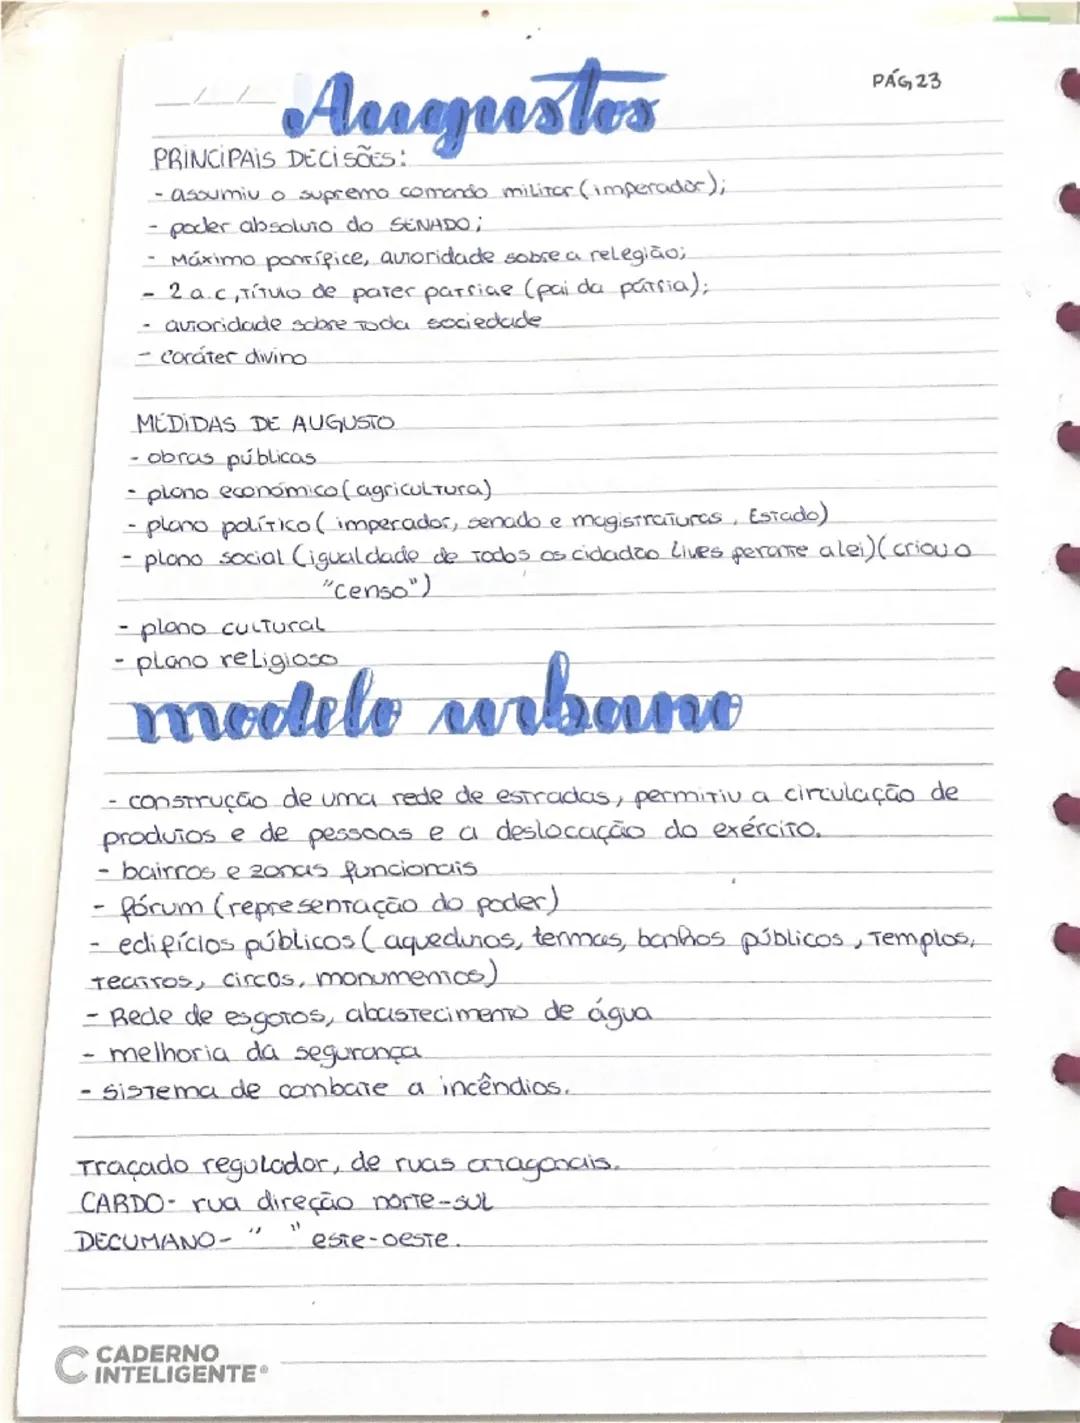 Auugustos
PÁG, 23
PRINCIPAIS DECISÕES:
- assumiu o supremo comando militar (imperador);
- poder absoluto do SENADO;
- Máximo pontífice, autoridade sobre a relegião;
- 2 a.c, Título de pater patriae (pai da pátria);
- autoridade sobre toda sociedade
- Caráter divino
MEDIDAS DE AUGUSTO
- obras públicas
- plano económico (agricultura)
- plano político ( imperador, senado e magistraturas, Estado)
- plano social (igualdade de todos os cidadão lives perante a lei)(criou o
"censo")
- plano cultural
- plano religioso
modelo urbano
- construção de uma rede de estradas, permitiu a circulação de
produtos e de pessoas e a deslocação do exército.
- bairros e zonas funcionais
- fórum (representação do poder)
- edifícios públicos ( aquedutos, termas, banhos públicos, templos,
teatros, circos, monumentos)
- Rede de esgotos, abastecimento de água
- melhoria da segurança
- sistema de combate a incêndios.
Traçado regulador, de ruas ortagonais.
CARDO- rua direção norte-sul
DECUMANO- " " este-oeste.
CADERNO
INTELIGENTE®